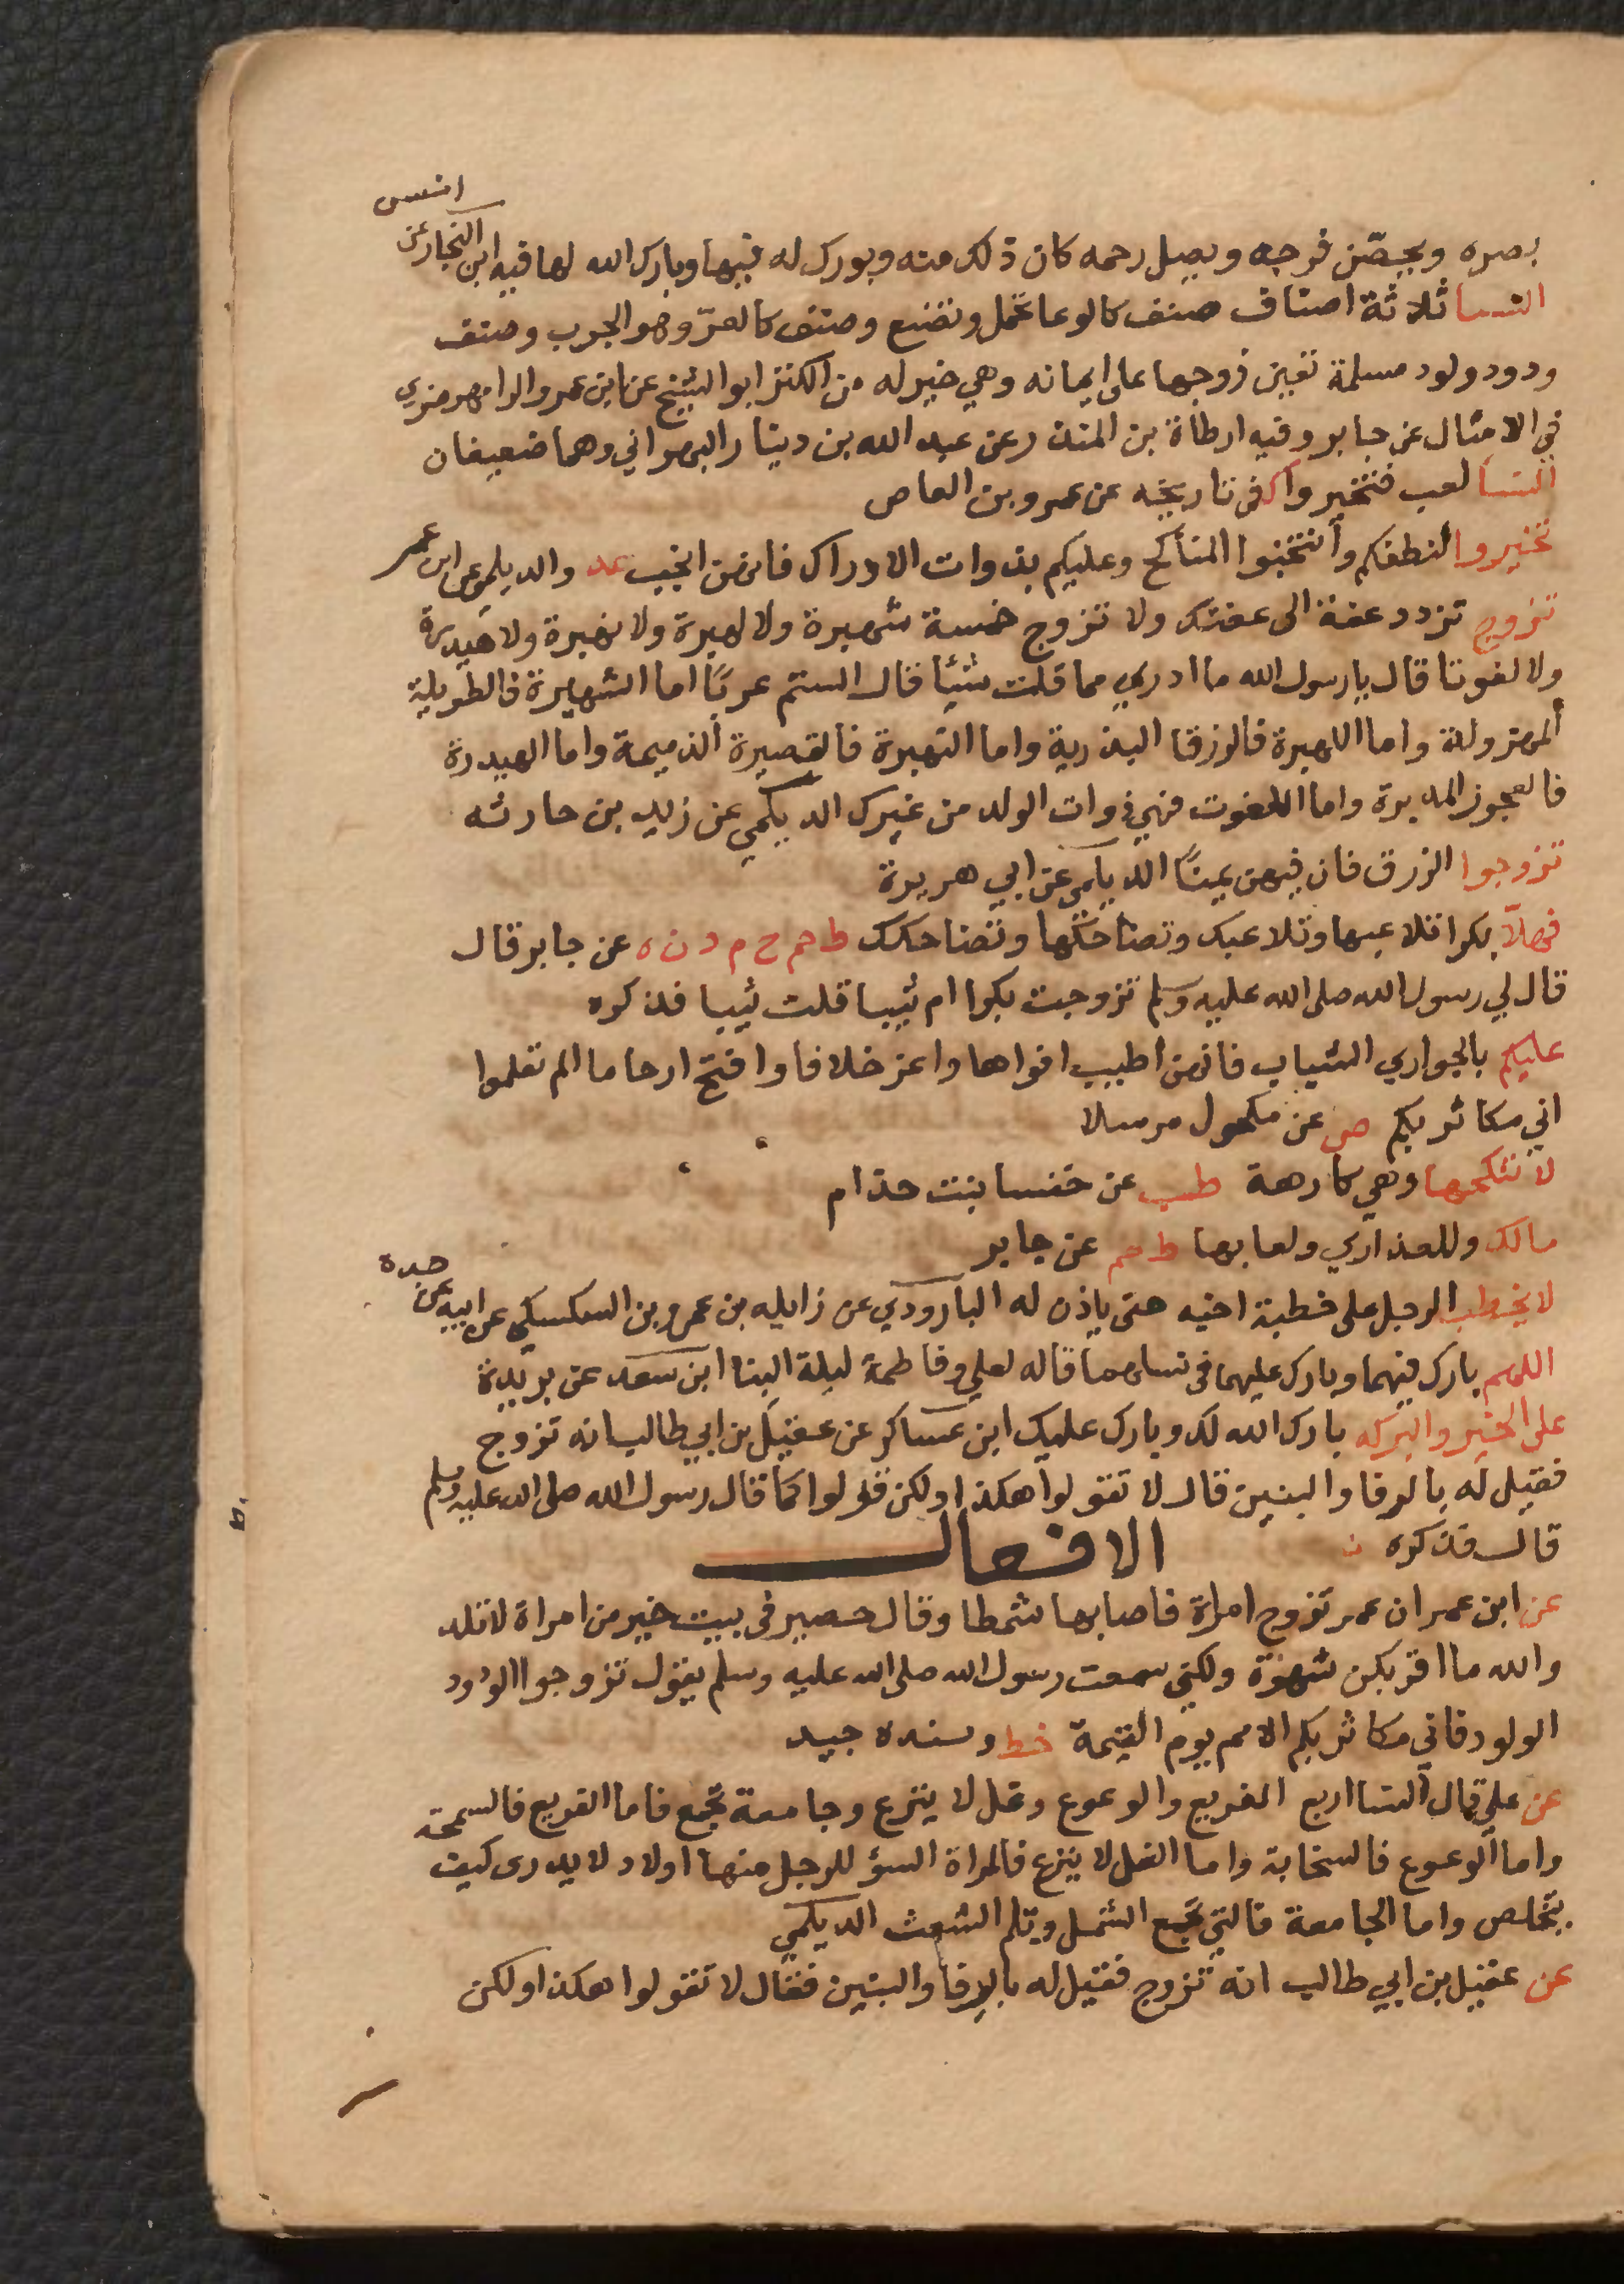 بصره ويحصّن فرجه ويصل رحمه كان ذلك منه وبورك له فيها وبارك الله لها فيه ابن النجار عن انس
النسا ثلاثة اصناف صنف كالوعا تحمل وتضع وصنف كالعرّ وهو الجرب وصنف
ودود ولود مسلمة تعين زوجها على ايمانه وهي خير له من الكنز ابو الشيخ عن ابن عمر والرامهرمزي
في الامثال عن جابر وفيه ارطاة بن المنذر عن عبد الله بن دينار البهراني وهما ضعيفان
النسا لعب فتخيروا ك في تاريخه عن عمرو بن العاص
تخيروا لنطفكم وانتخبوا المناكح وعليكم بذوات الاوراك فانهن انجب عد والديلمي عن ابن عمر
تزوج تزدد عفة الى عفتك ولا تزوج خمسة شهبرة ولا لهبرة ولا نهبرة ولا هيدرة
ولا لفوتا قال يا رسول الله ما ادري مما قلت شيئا قال الستم عربًا اما الشهبرة فالطويلة
المهزولة واما اللهبرة فالزرقا البذرية واما النهبرة فالقصيرة الذميمة واما الهيدرة
فالعجوز المدبرة واما اللفوت فهي ذوات الولد من غيرك الديلمي عن زيد بن حارثه
تزوجوا الزرق فان فيهن يمنًا الديلمي عن ابي هريرة
فهلّا بكرا تلاعبها وتلاعبك وتضاحكها وتضاحكك ط حم خ م د ن ه عن جابر قال
قال لي رسول الله صلى الله عليه وسلم تزوجت بكرا ام ثيبا قلت ثيبا فذكره
عليكم بالجواري الشباب فانهن اطيب افواها واعز خلافا وافتح ارحاما الم تعلموا
اني مكاثر بكم ص عن مكحول مرسلا
لا تنكحها وهي كارهة طب عن خنسا بنت حذام
مالك وللعذاري ولعابها ط حم عن جابر
لا يخطب الرجل على خطبة اخيه حتى ياذن له الباوردي عن زايله بن عمرو بن السكسكي عن ابيه عن جده
اللهم بارك فيهما وبارك عليهما في نسلهما قاله لعلي وفاطمة ليلة البنا ابن سعد عن بريدة
على الخير والبركه بارك الله لك وبارك عليك ابن عساكر عن عقيل بن ابي طالب انه تزوج
فقيل له بالرفا والبنين قال لا تقولوا هكذا ولكن قولوا كما قال رسول الله صلى الله عليه وسلم
قال فذكره ن الافعال
عن ابن عمر ان عمر تزوج امراة فاصابها شمطا وقال حصير في بيت خير من امراة لا تلد
والله ما اقربكن شهوة ولكني سمعت رسول الله صلى الله عليه وسلم يقول تزوجوا الودود
الولود فاني مكاثر بكم الامم يوم القيمة خط وسنده جيد
عن علي قال النسا اربع القريع والوعوع وغل لا ينزع وجامعة تجمع فاما القريع فالسمحة
واما الوعوع فالسخابة واما الغل لا ينزع فالمراة السؤ للرجل منها اولاد لا يدرى كيف
يتخلص واما الجامعة فالتي تجمع الشمل وتلم الشعث الديلمي
عن عقيل بن ابي طالب انه تزوج فقيل له بالرفا والبنين فقال لا تقولوا هكذا ولكن